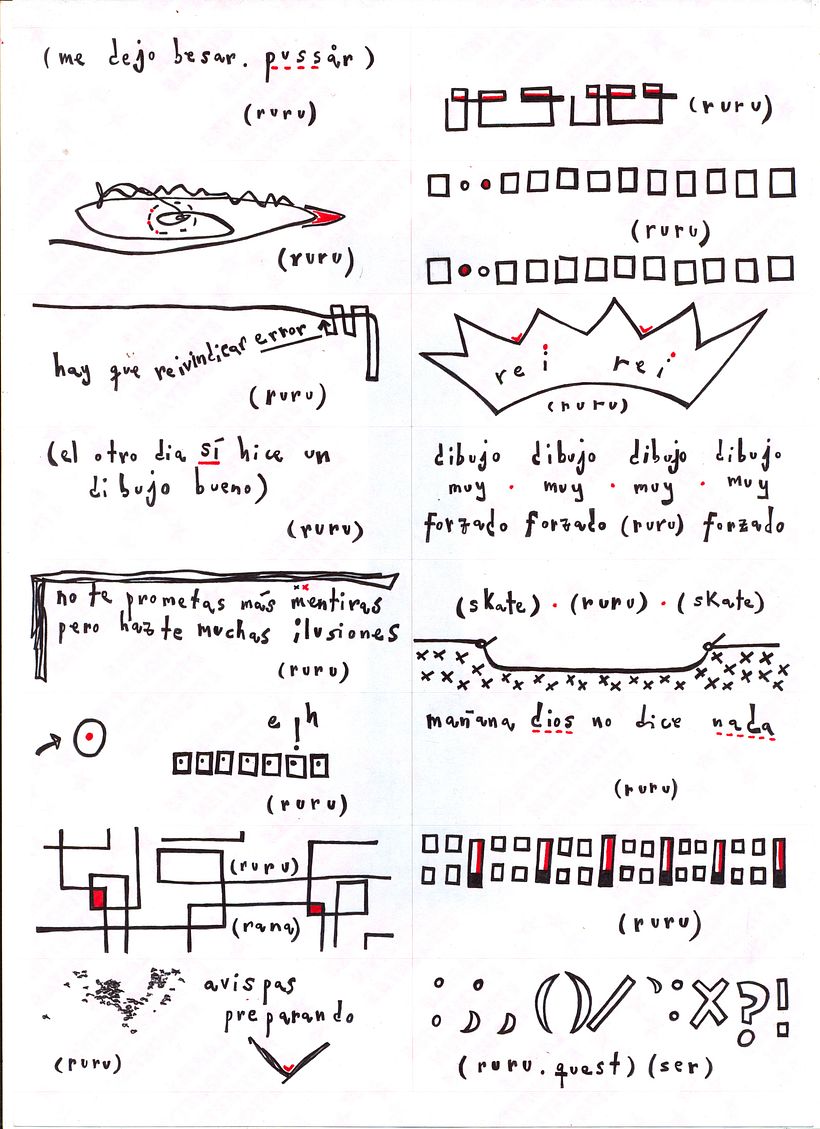 (me dejo besar. pussår)
(ruru)
(ruru)
(ruru)
(ruru)
hay que reivindicar error
(ruru)
rei rei
(ruru)
(el otro dia sí hice un
dibujo bueno)
(ruru)
dibujo dibujo dibujo dibujo
muy · muy · muy · muy
forzado forzado (ruru) forzado
no te prometas más mentiras
pero hazte muchas ilusiones
(ruru)
(skate) · (ruru) · (skate)
e ¡ h
(ruru)
mañana dios no dice nada
(ruru)
(ruru)
(rana)
(ruru)
avispas
preparando
(ruru)
: ; ( ) / X ? !
(ruru.quest) (ser)